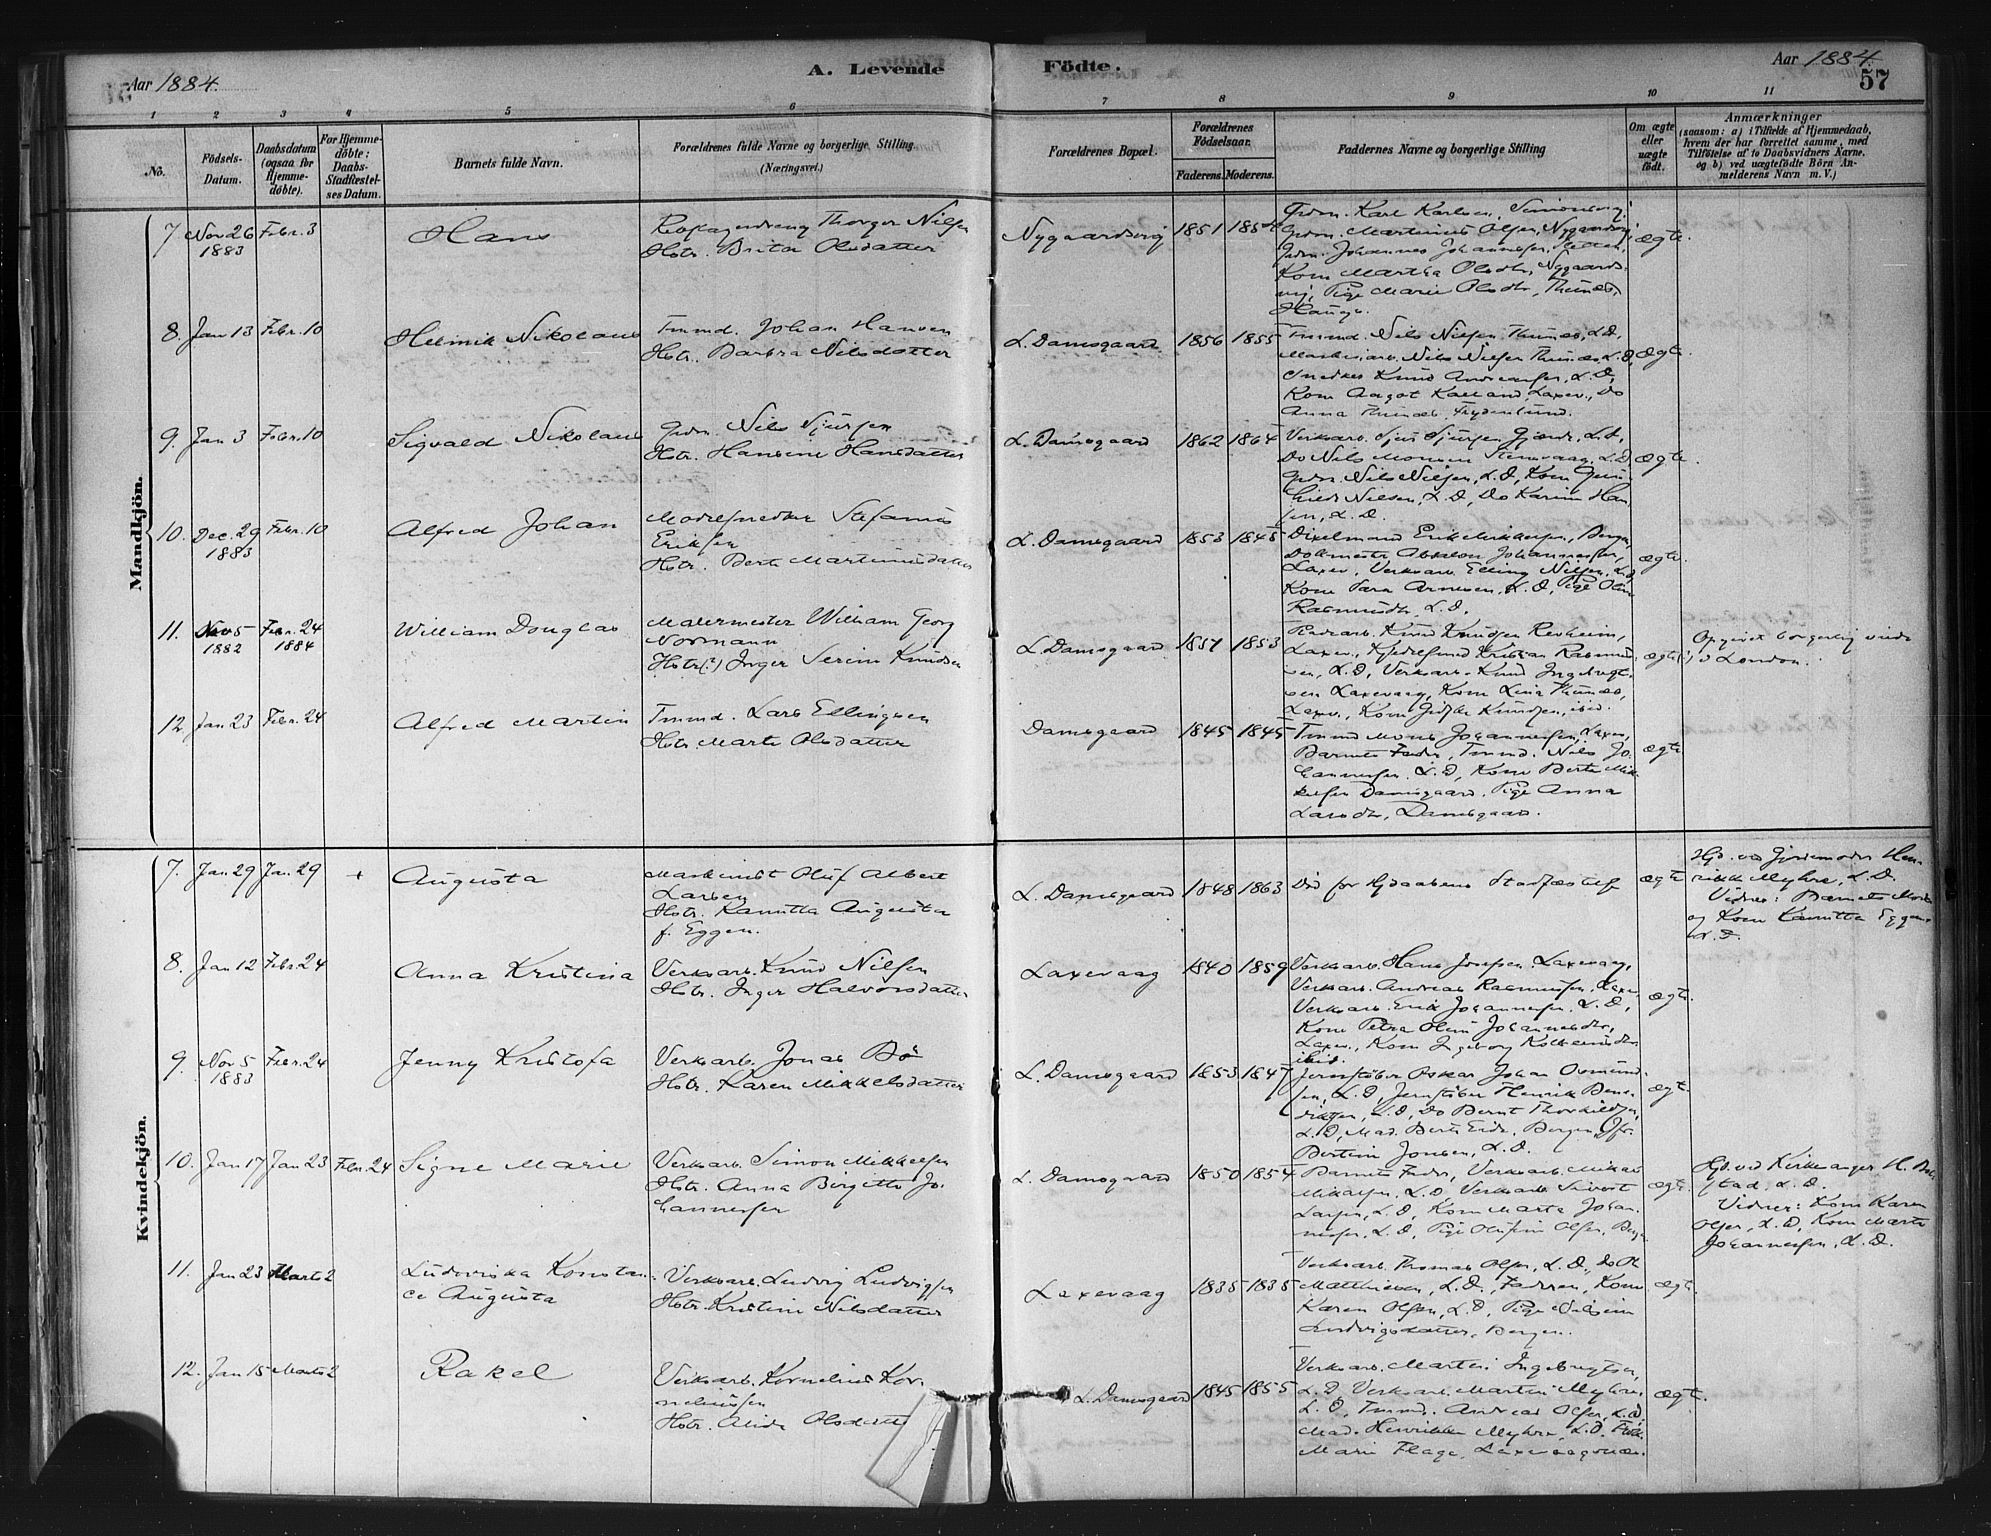 Aar 1884.
A. Levende
Födte.
Aar 1884.
57
1 2 3 4 5 6 7 8 9 10 11
No.
Födsels-
Datum.
Daabsdatum
(ogsaa for
Hjemme-
döbte).
For Hjemme-
döbte:
Daabs-
Stadfæstel-
ses Datum.
Barnets fulde Navn.
Forældrenes fulde Navne og borgerlige Stilling
(Næringsvei.)
Forældrenes Bopæl.
Forældrenes
Födselsaar.
Faderens. Moderens.
Faddernes Navne og borgerlige Stilling
Om ægte
eller
uægte
født.
Anmærkninger
(saasom: a) i Tilfælde af Hjemmedaab,
hvem der har forrettet samme, med
Tilföielse af to Daabsvidners Navne,
og b) ved uægtefödte Börn An-
melderens Navn m. V.)
Mandkjön.
7 Nov 26 Febr. 3
1883
Hans
Thorger Nilsen
Hstr. Brita Olsdatter
Nygaardsvig 1851
Gdm. Karl Karlsen, Simonsvig,
Gdm. Martinus Olsen, Nygaardsvig,
Gdm. Johannes Johannessen,
Kone Martha Olsdtr, Nygaards-
vig, Pige Marie Olsdtr,
ægte.
8. Jan 13 Febr. 10
Helmik Nikolaus
Tmmd. Johan Hansen
Hstr. Barbra Nilsdatter
L. Damsgaard 1856 1855
Tmmd. Nils Nielsen Thunæs, L.D.,
Maskinarb. Nils Nielsen Thunæs, L.D.,
Snedker Knud Andreassen, L.D.,
Kone Aagot Kalland, Laxev., Do
Anna Thunæs, Frydenlund.
ægte.
9. Jan 3 Febr. 10
Sigvald Nikolaus
Gdm. Nils Sjursen
Hstr. Hansine Hansdatter
L. Damsgaard 1862 1864
Verksarb. Sjur Sjursen Gjerde, L.D.,
Do Nils Monsen Stensvaag, L.D.,
Nils Nilsen, L.D., Kone Gun-
hild Nilsen, L.D., Do Karine Han-
sen, L.D.
ægte.
10. Dec. 29 Febr. 10
1883
Alfred Johan
Modelsnedker Stefanus
Eriksen
Hstr. Berte Martinusdatter
L. Damsgaard 1853 1845
Erik Mikkelsen, Bergen,
Dokmester Absalon Johannessen,
Laxev., Verksarb. Elling Nilsen, L.D.,
Kone Sara Arnesen, L.D., Pige Oline
Rasmusdtr, L.D.
ægte.
11. Nov 5 Febr. 24
1882 1884
William Douglas
Malermester William Georg
Normann
Hstr(?) Inger Serine Knudsen
L. Damsgaard 1857 1853
Knud Knudsen Revheim,
Laxev., Kjedelsmed Kristian Rasmus-
sen, L.D., Verksarb. Knud Ingebrigt-
sen Laxevaag, Kone Lina Thunæs,
Laxev., Kone Gidske Knudsen, ibid.
ægte(?)
Opgivet borgerlig viede
i London.
12. Jan 23 Febr. 24
Alfred Martin
Tmmd. Lars Ellingsen
Hstr. Marte Olsdatter
Damsgaard 1845 1845
Tmmd Mons Johannessen, Laxev.,
Barnets Fader, Tmmd. Nils Jo-
hannessen, L.D., Kone Berte Mik-
kelsen Damsgaard, Pige Anna
Larsdtr, Damsgaard.
ægte
Kvindekjön.
7. Jan 29 Jan. 29 +
Augusta
Maskinist Oluf Albert
Larsen
Hstr. Kamitta Augusta
f. Eggen.
L. Damsgaard 1848 1863
Död før Hjdaabens Stadfæstelse
ægte
Hjd. ved Gjordemoder Hen-
rikke Myhre, L.D.
Vidner: Barnets Moder
og Kone Kamitta Eggen
L.D.
8. Jan 12 Febr. 24
Anna Kristina
Verksarb. Knud Nilsen
Hstr. Inger Halvorsdatter
Laxevaag 1840 1859
Verksarb. Hans Josefsen, Laxevaag,
Verksarb. Andreas Rasmussen, Laxev.,
Verksarb. Erik Johannessen, L.D.,
Kone Petra Oline Johannesdtr,
Laxev., Kone Ingeborg
ibid.
ægte.
9. Nov 5 Febr. 24
1883
Jenny Kristofa
Verksarb. Jonas Bö
Hstr. Karen Mikkelsdatter
L. Damsgaard 1853 1847
Jernstöber Oskar Johan Osmund-
sen, L.D., Jernstöber Henrik Bene-
diktsen, L.D., Do Bernt Thorkildsen,
L.D., Mad. Berte Eide, Bergen, Jfr.
Bertine Jonsen, L.D.
ægte.
10. Jan 17 Jan 23 Febr. 24
Signe Marie
Verksarb. Simon Mikkelsen
Hstr. Anna Birgitte Jo-
hannessen
L. Damsgaard 1850 1854
Barnets Fader, Verksarb. Mikal
Mikalsen, L.D., Verksarb. Sivert
Larsen, L.D., Kone Marta Johan-
nessen, L.D., Pige Olufine Olsen, Bergen
ægte.
Hjd. ved Kirkesanger H. Bol-
stad, L.D.
Vidner: Kone Karen
Olsen, L.D., Kone Marte
Johannessen, L.D.
11. Jan 23 Marts 2
Ludoviska Konstan-
ce Augusta
Verksarb. Ludvig Ludvigsen
Hstr. Kristine Nilsdatter
Laxevaag 1835 1835
Verksarb. Thomas Olsen, L.D., Do
Matthiesen, L.D., Faderen, Kone
Karen Olsen, L.D., Pige
Ludvigsdatter, Bergen.
ægte.
12. Jan 15 Marts 2
Rakel
Verksarb. Kornelius Kor-
neliussen
Hstr. Olsdatter
L. Damsgaard 1845 1855
Verksarb. Martin Ingebrigtsen,
L.D., Verksarb. Martin Myhre,
L.D., Tmmd. Andreas Olsen, L.D.,
Mad. Henrikke Myhre, L.D.,
Marie Flage, Laxevaag
ægte.